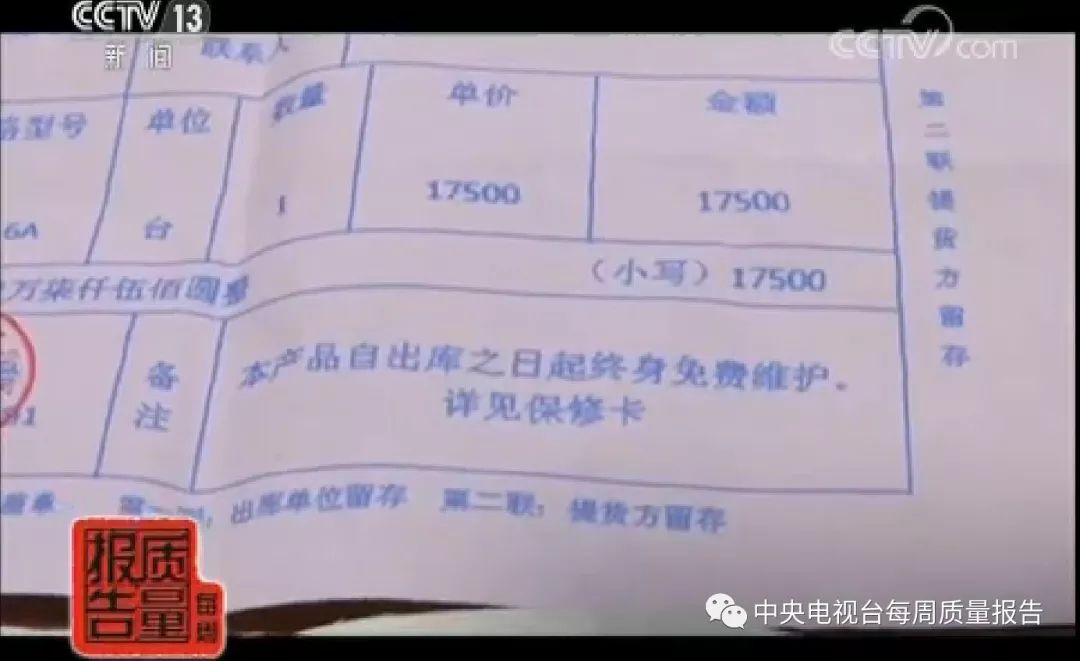 CCTV 13
新闻
CCTV.com
联系人
格型号 单位 数量 单价 金额
6A 台 1 17500 17500
万柒仟伍佰圆整 (小写) 17500
备注
本产品自出库之日起终身免费维护。
详见保修卡
第二联:提货方留存
出库单位留存
第二联提货方留存
每周质量报告
中央电视台每周质量报告